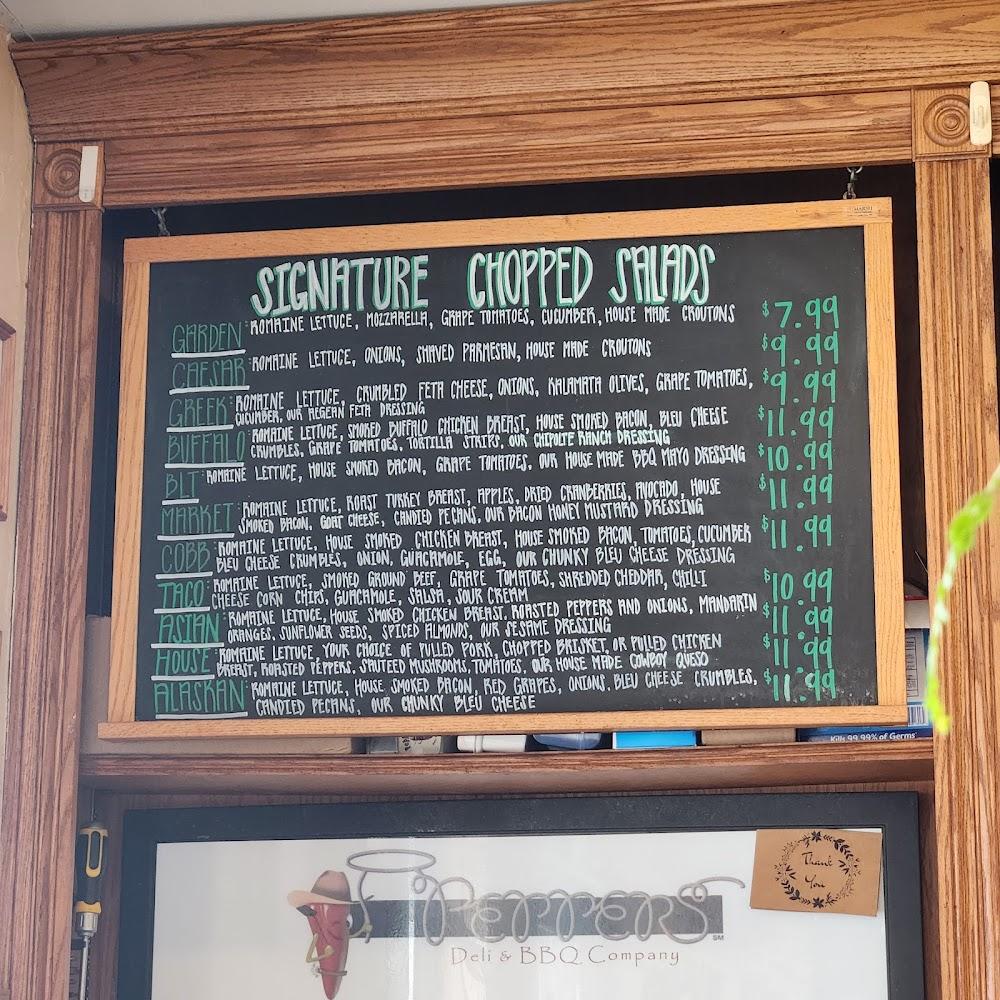 SIGNATURE CHOPPED SALADS
GARDEN: ROMAINE LETTUCE, MOZZARELLA, GRAPE TOMATOES, CUCUMBER, HOUSE MADE CROUTONS $7.99
CAESAR: ROMAINE LETTUCE, ONIONS, SHAVED PARMESAN, HOUSE MADE CROUTONS $9.99
GREEK: ROMAINE LETTUCE, CRUMBLED FETA CHEESE, ONIONS, KALAMATA OLIVES, GRAPE TOMATOES, $9.99
CUCUMBER, OUR AEGEAN FETA DRESSING
BUFFALO: ROMAINE LETTUCE, SMOKED BUFFALO CHICKEN BREAST, HOUSE SMOKED BACON, BLEU CHEESE $11.99
CRUMBLES, GRAPE TOMATOES, TORTILLA STRIPS, OUR CHIPOLTE RANCH DRESSING
BLT: ROMAINE LETTUCE, HOUSE SMOKED BACON, GRAPE TOMATOES, OUR HOUSE MADE BBQ MAYO DRESSING $10.99
MARKET: ROMAINE LETTUCE, ROAST TURKEY BREAST, APPLES, DRIED CRANBERRIES, AVOCADO, HOUSE $11.99
SMOKED BACON, GOAT CHEESE, CANDIED PECANS, OUR BACON HONEY MUSTARD DRESSING
COBB: ROMAINE LETTUCE, HOUSE SMOKED CHICKEN BREAST, HOUSE SMOKED BACON, TOMATOES, CUCUMBER $11.99
BLEU CHEESE CRUMBLES, ONION, GUACAMOLE, EGG, OUR CHUNKY BLEU CHEESE DRESSING
TACO: ROMAINE LETTUCE, SMOKED GROUND BEEF, GRAPE TOMATOES, SHREDDED CHEDDAR, CHILLI $10.99
CHEESE CORN CHIPS, GUACAMOLE, SALSA, SOUR CREAM
ASIAN: ROMAINE LETTUCE, HOUSE SMOKED CHICKEN BREAST, ROASTED PEPPERS AND ONIONS, MANDARIN $11.99
ORANGES, SUNFLOWER SEEDS, SPICED ALMONDS, OUR SESAME DRESSING
HOUSE: ROMAINE LETTUCE, YOUR CHOICE OF PULLED PORK, CHOPPED BRISKET, OR PULLED CHICKEN $11.99
BREAST, ROASTED PEPPERS, SAUTEED MUSHROOMS, TOMATOES, OUR HOUSE MADE COWBOY QUESO
ALASKAN: ROMAINE LETTUCE, HOUSE SMOKED BACON, RED GRAPES, ONIONS, BLEU CHEESE CRUMBLES, $11.99
CANDIED PECANS, OUR CHUNKY BLEU CHEESE
Kills 99.99% of Germs
Thank
You
PEPPERS SM
Deli & BBQ Company